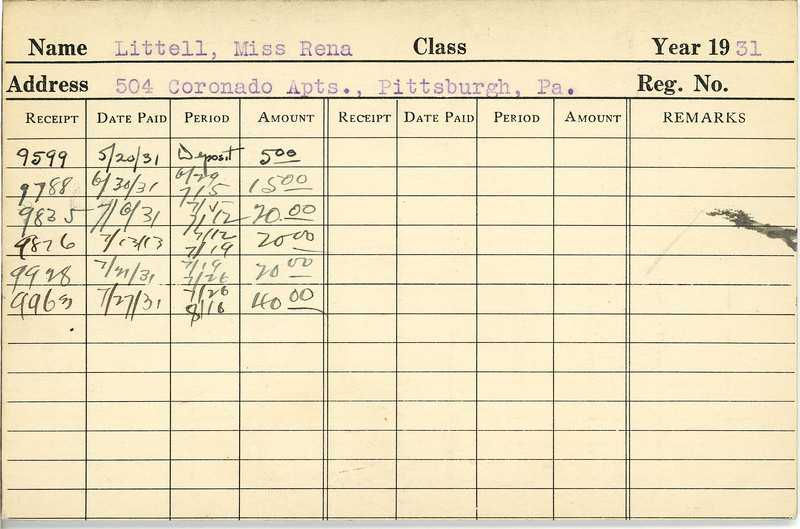 Name Littell, Miss Rena Class Year 1931
Address 504 Coronado Apts., Pittsburgh, Pa. Reg. No.
RECEIPT DATE PAID PERIOD AMOUNT RECEIPT DATE PAID PERIOD AMOUNT REMARKS
9599 5/20/31 Deposit 5 00
9788 6/30/31 6/29 7/5 15 00
9835 7/6/31 7/5 7/12 20.00
9876 7/13/13 7/12 7/19 20 00
9928 7/21/31 7/19 7/26 20 00
9963 7/27/31 7/26 8/16 40 00